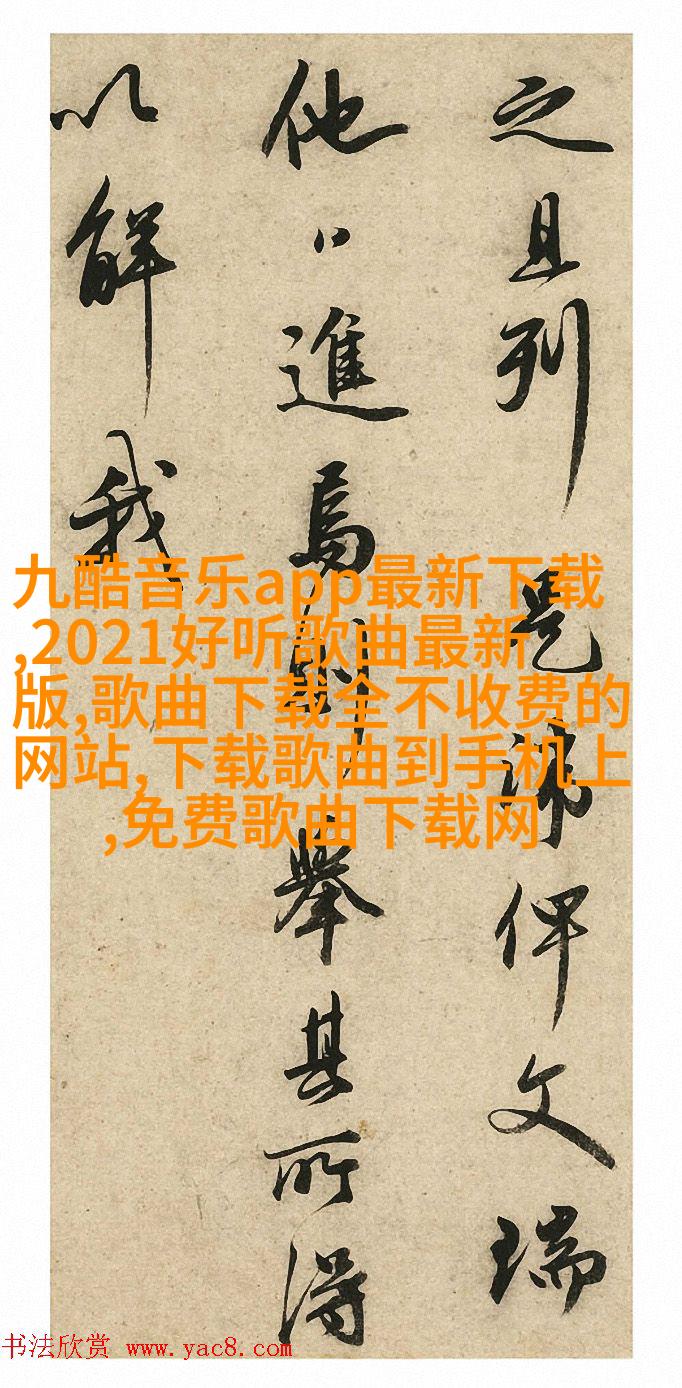 之且列是俾文瑞
他進焉則舉其所得
以解我
九酷音乐app最新下载
,2021好听歌曲最新
版,歌曲下载全不收费的
网站,下载歌曲到手机上
,免费歌曲下载网
书法欣赏 www.yac8.com